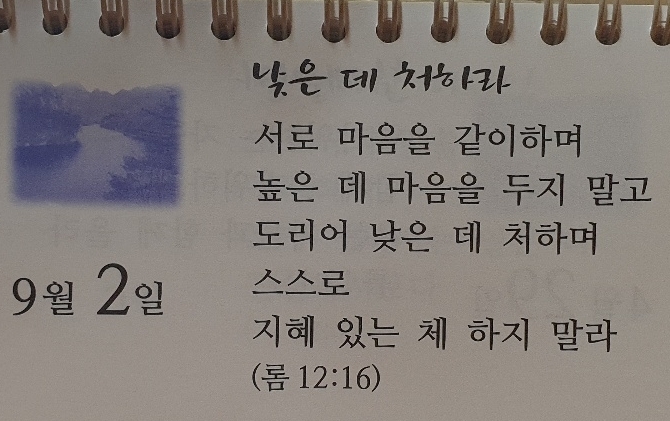 낮은 데 처하라
서로 마음을 같이하며
높은 데 마음을 두지 말고
도리어 낮은 데 처하며
스스로
지혜 있는 체 하지 말라
(롬 12:16)
9월 2일